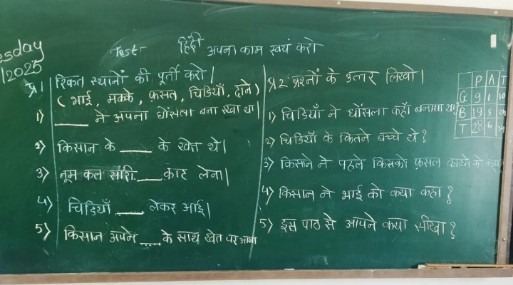 esday
2025
Test- हिंदी अपना काम स्वयं करो
प्र1 रिक्त स्थानों की पूर्ती करो।
(भाई, मक्के, फ़सल, चिड़ियाँ, दाने)
1) ____ ने अपना घोंसला बना रखा था।
2) किसान के ____ के खेत थे।
3) तुम कल सारी ____ काट लेना।
4) चिड़ियाँ ____ लेकर आई।
5) किसान अपने ____ के साथ खेत पर आया
प्र2 प्रश्नों के उत्तर लिखो।
1) चिड़ियाँ ने घोंसला कहाँ बनाया था
2) चिड़ियाँ के कितने बच्चे थे?
3) किसान ने पहले किसको फ़सल काटने को
4) किसान ने भाई को क्या कहा?
5) इस पाठ से आपने क्या सीखा?
P A T
G 9 1 10
B 19 5
T 28 6